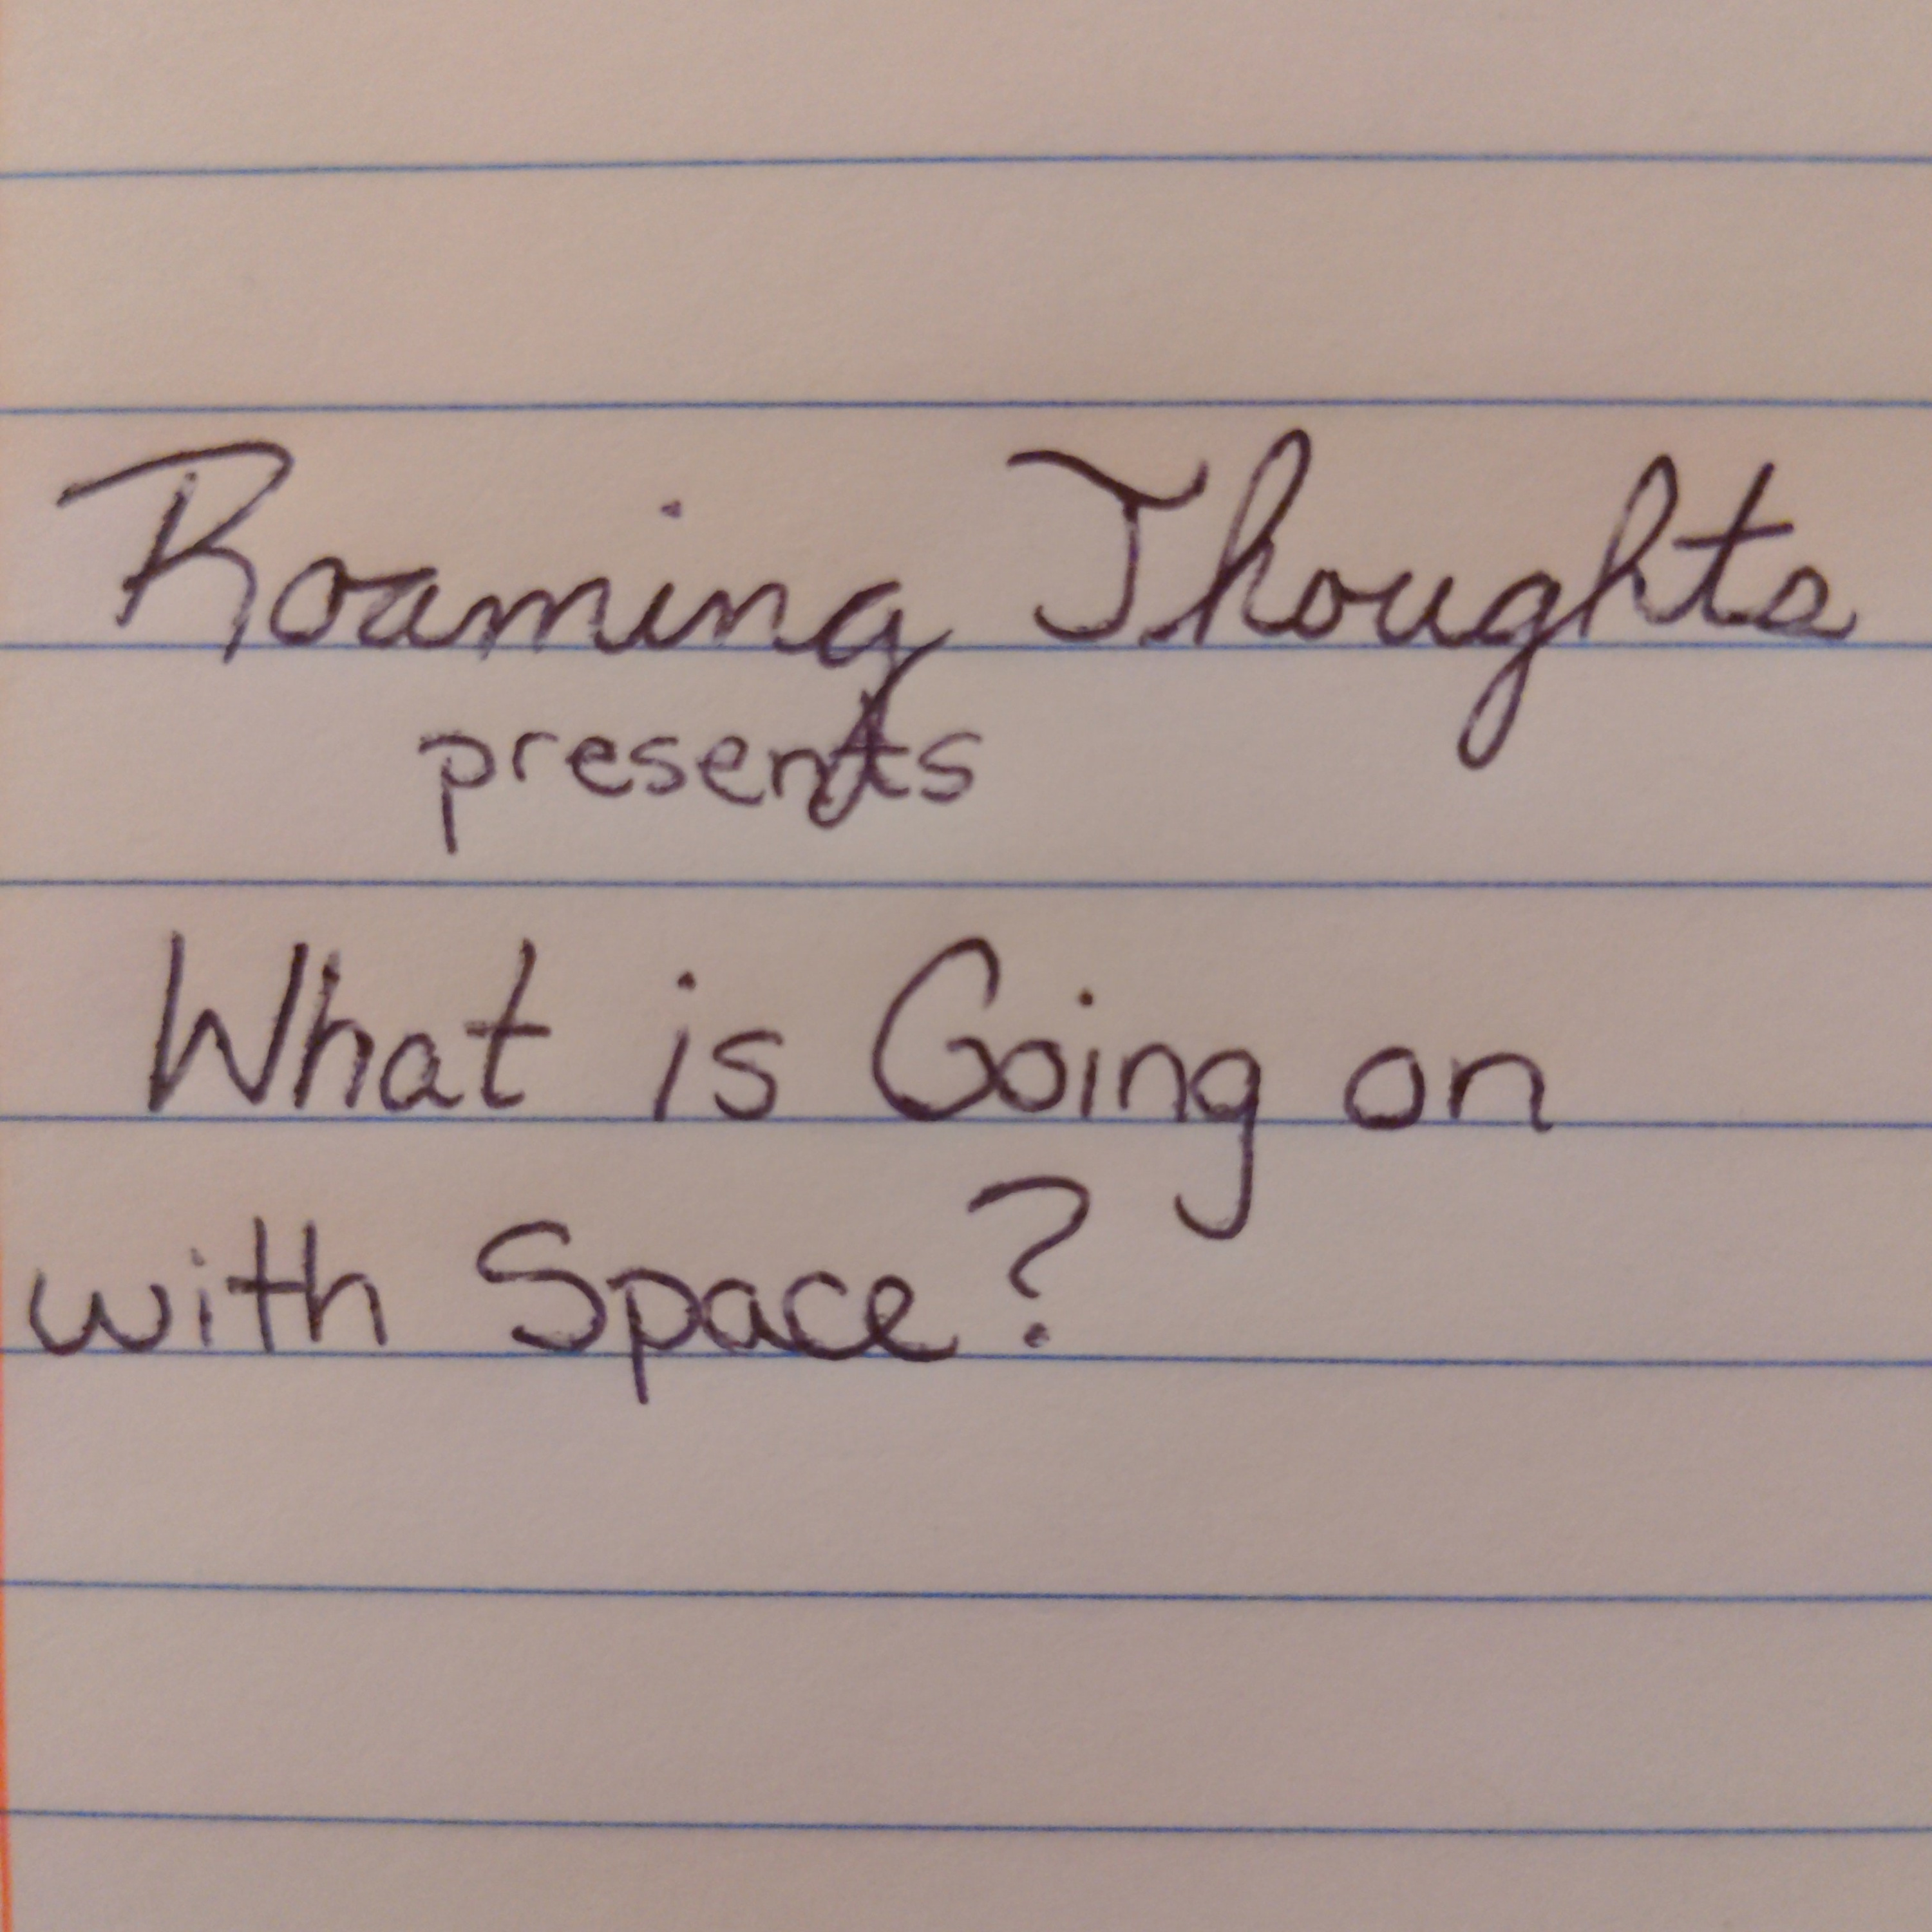 Roaming Thoughts
presents
What is Going on
with Space?